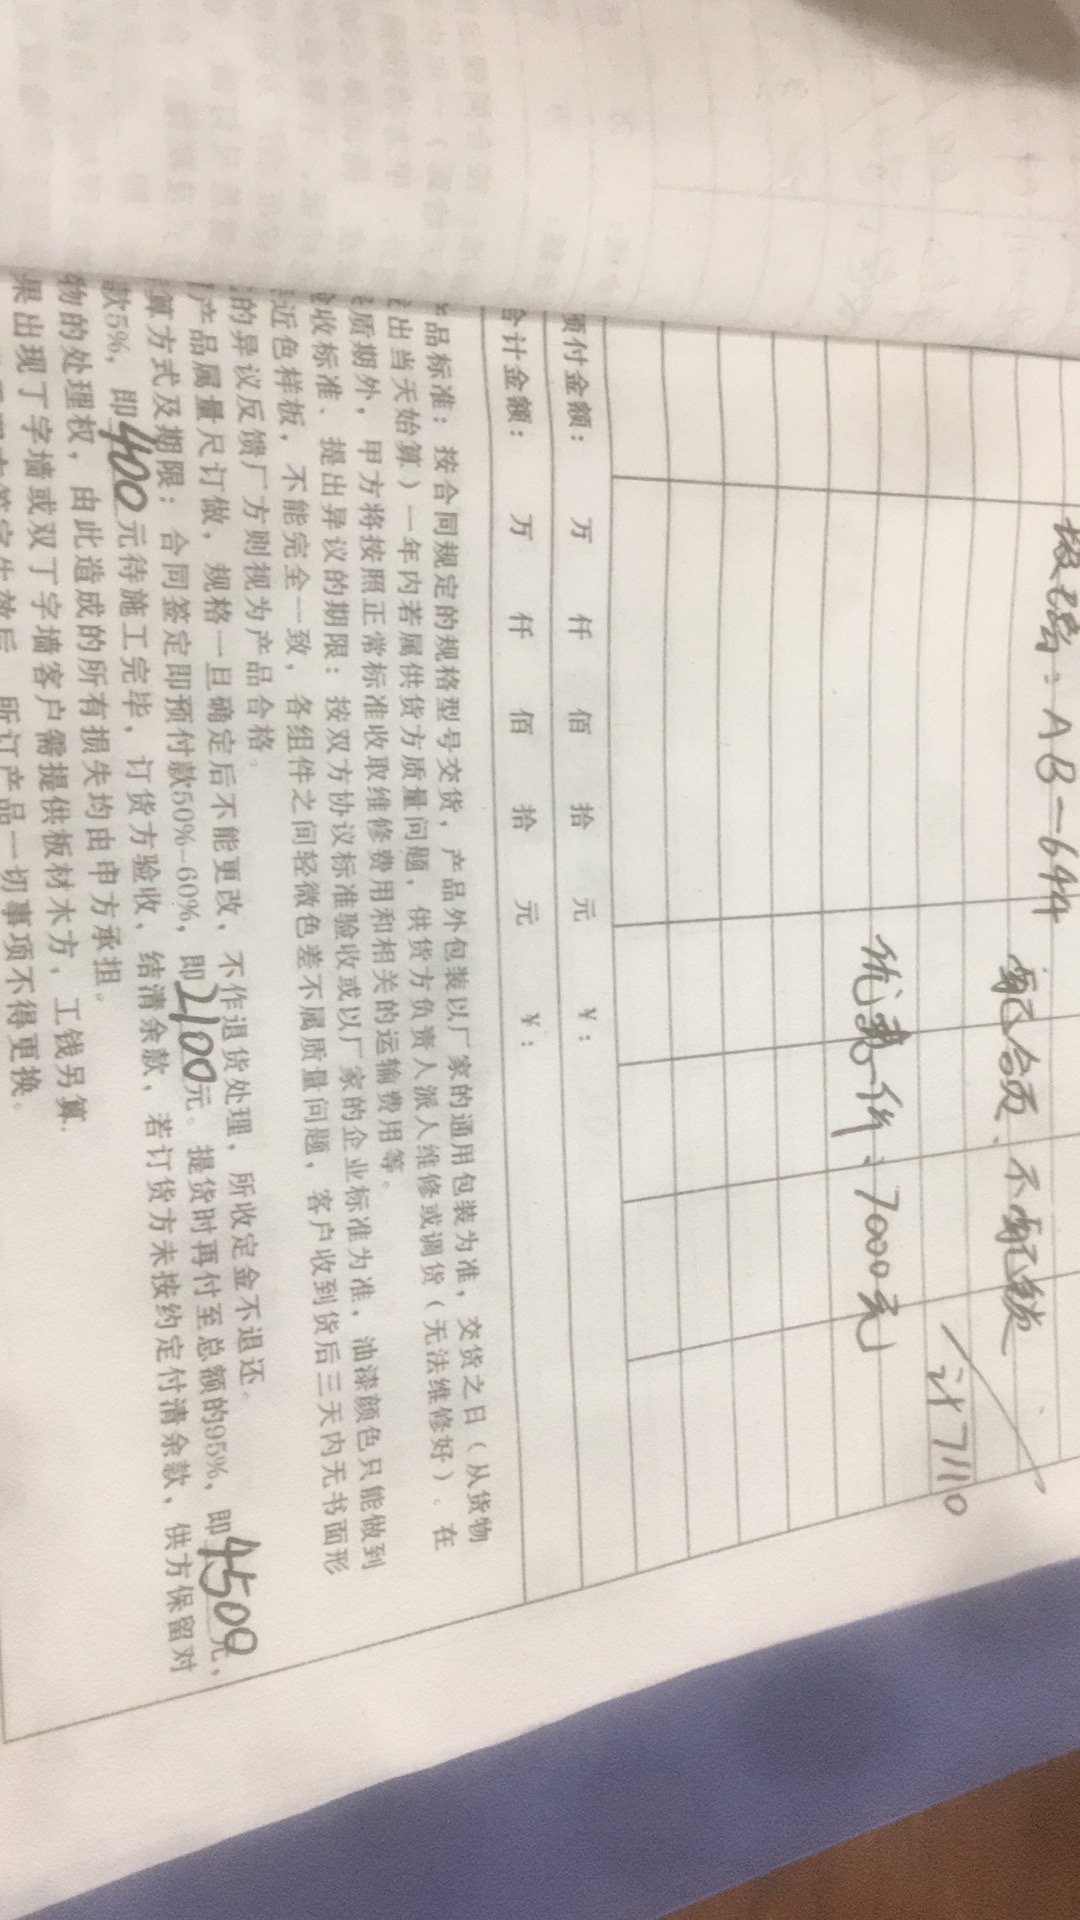 玻璃：AB-644
配合页、不配锁
计7110
优惠价：7000元
预付金额： 万 仟 佰 拾 元 ¥：
合计金额： 万 仟 佰 拾 元 ¥：
产品标准：按合同规定的规格型号交货，产品外包装以厂家的通用包装为准，交货之日（从货物
出当天始算）一年内若属供货方质量问题，供货方负责人派人维修或调货（无法维修好）。在
质期外，甲方将按照正常标准收取维修费用和相关的运输费用等。
收标准、提出异议的期限：按双方协议标准验收或以厂家的企业标准为准，油漆颜色只能做到
近色样板，不能完全一致，各组件之间轻微色差不属质量问题，客户收到货后三天内无书面形
的异议反馈厂方则视为产品合格。
产品属量尺订做，规格一旦确定后不能更改，不作退货处理，所收定金不退还。
算方式及期限：合同签定即预付款50%-60%，即2100元。提货时再付至总额的95%，即4500元，
款5%，即400元待施工完毕，订货方验收，结清余款，若订货方未按约定付清余款，供方保留对
物的处理权，由此造成的所有损失均由申方承担。
果出现丁字墙或双丁字墙客户需提供板材木方，工钱另算.
签字生效后，所订产品一切事项不得更换。